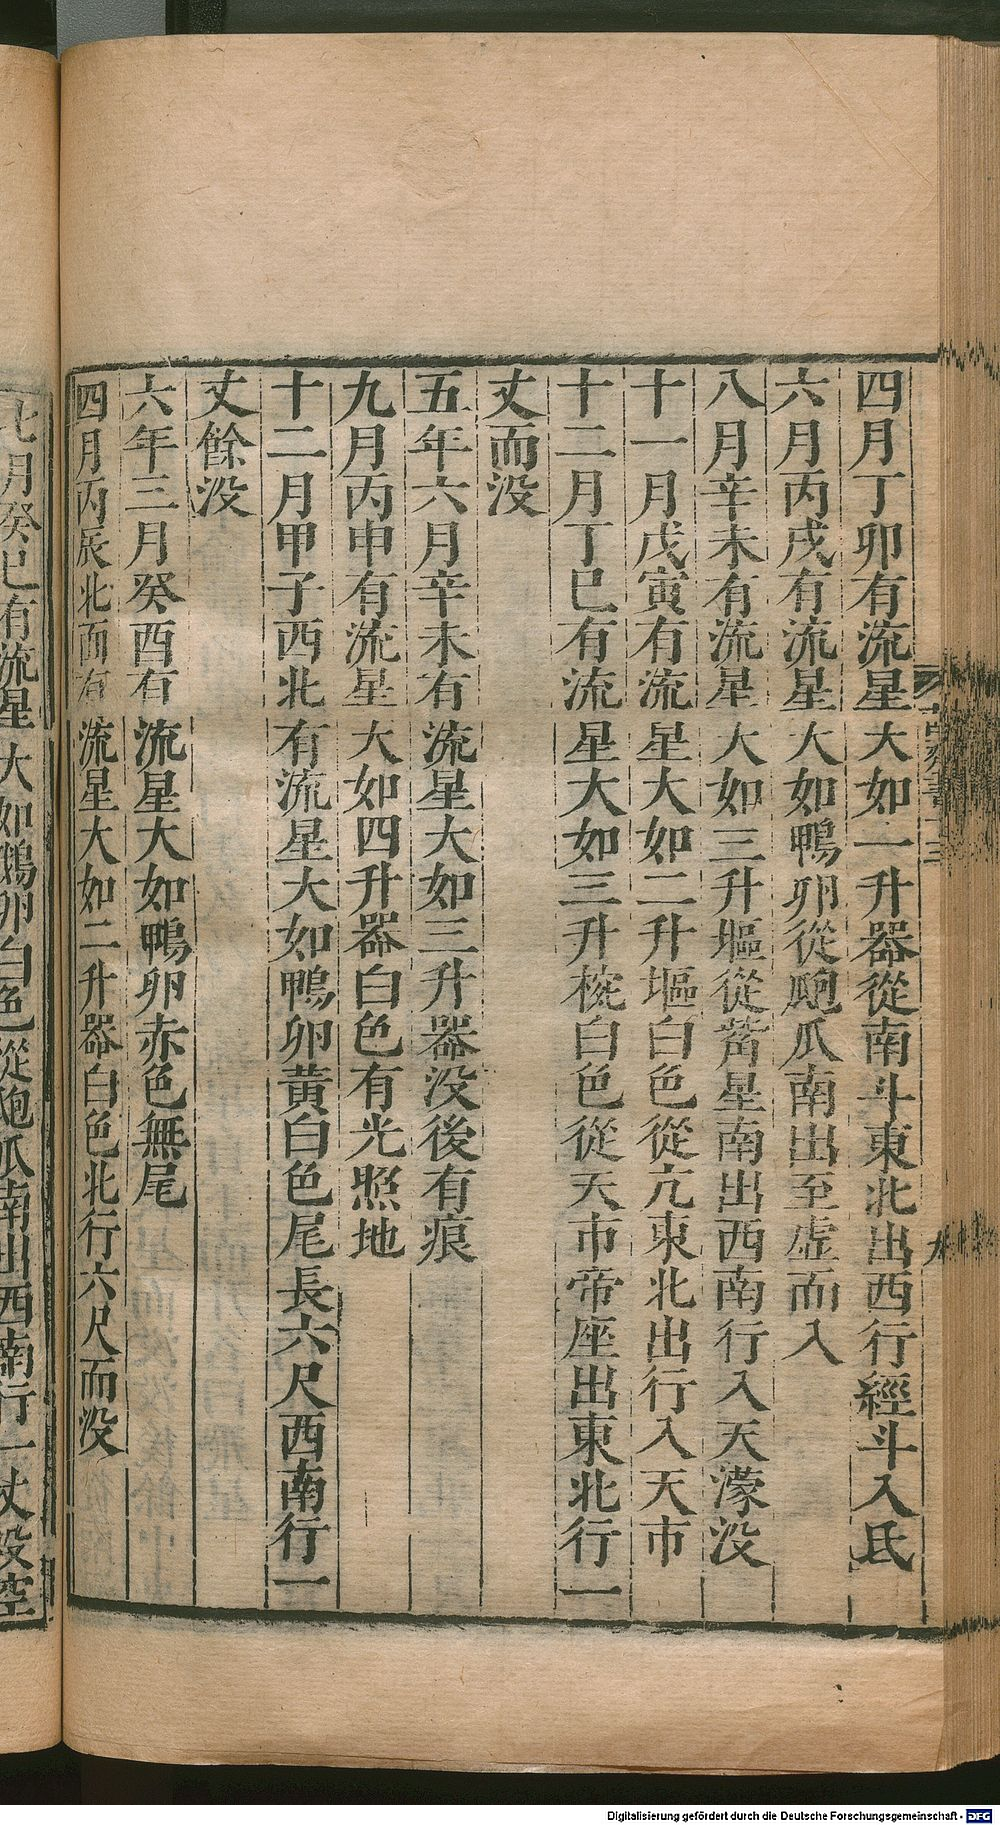 四月丁卯有流星大如一升器從南斗東北出西行經斗入氐
六月丙戌有流星大如鴨卵從瓟瓜南出至虛而入
八月辛未有流星大如三升塸從觜星南出西南行入天濛没
十一月戊寅有流星大如二升塸白色從亢東北出行入天市
十二月丁巳有流星大如三升椀白色從天市帝座出東北行一
丈而没
五年六月辛未有流星大如三升器没後有痕
九月丙申有流星大如四升器白色有光照地
十二月甲子西北有流星大如鴨卵黃白色尾長六尺西南行一
丈餘没
六年三月癸酉有流星大如鴨卵赤色無尾
四月丙辰北面有流星大如二升器白色北行六尺而没
七月癸巳有流星大如鵝卵白色從瓟瓜南出西南行一丈没空
Digitalisierung gefördert durch die Deutsche Forschungsgemeinschaft - DFG